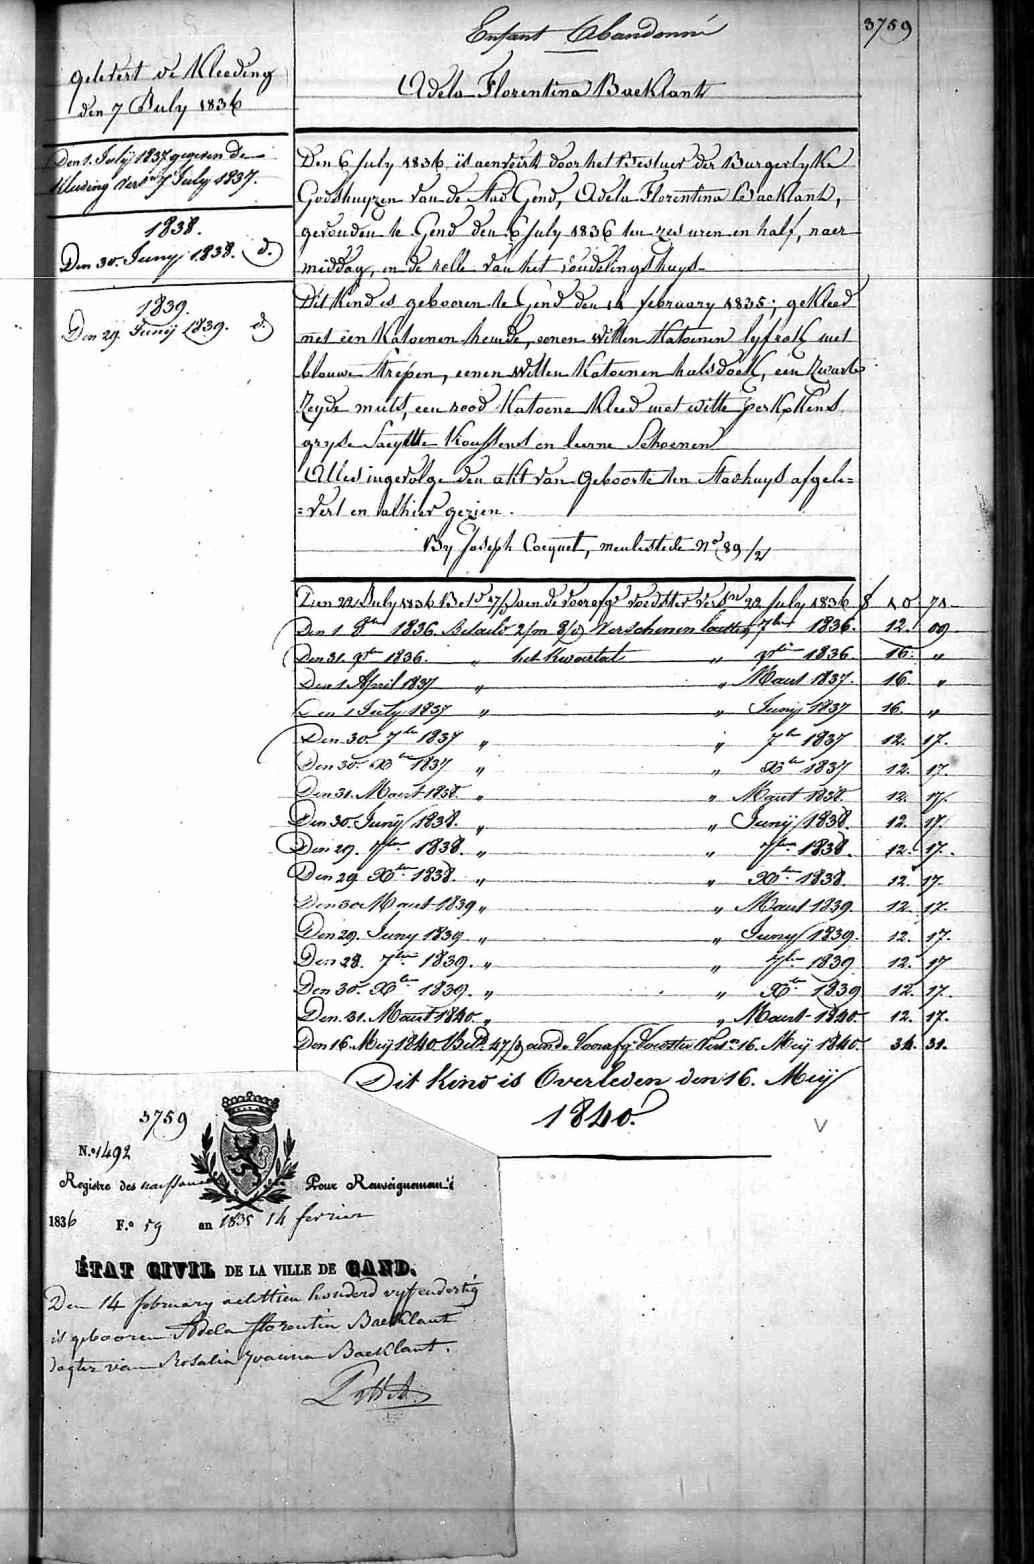 3759
Enfant Abandonné
Adela Florentina Baeklant
gelevert de Kleeding
den 7 July 1836
Den 1. July 1837 gegeven de
kleeding vers. 7 July 1837.
1838.
Den 30. Juny 1838. d.
1839.
Den 29. Junij 1839. d.
Den 6 July 1836, is aenveird door het Bestuer der Burgerlyke
Godshuyzen van de Stad Gend, Adela Florentina Baeklant,
gevonden te Gend den 6 July 1836 ten zes uren en half, naer
middag, in de rolle van het vondelingshuys
Dit Kind is gebooren te Gend den 14 february 1835; gekleed
met een Katoenen hemde, eenen witten Katoenen lyfrok met
blouwe strepen, eenen witten Katoenen halsdoek, een zwarte
zeyde muts, een rood Katoene Kleed met witte perkxkens,
gryse Kaussens en leirne Schoenen
Alles ingevolge den akt van Geboorte ten Stadhuys afgele=
=vert en alhier gezien.
By Joseph Cocquet, meulestede N.o 89/2
Den 22 July 1836 Bet.d 17/ aen de voorofg.e voedster vers.n 22 July 1836 f 10 71
Den 1 8.bre 1836. Betaelt 2/m 8/d Verschenen 7.bre 1836. 12. 09
Den 31. X.bre 1836. " het Kwartael " X.bre 1836 16. "
Den 1 April 1837 " " Maert 1837. 16. "
Den 1 July 1837 " " Junij 1837 16. "
Den 30. 7.bre 1837 " " 7.bre 1837 12. 17.
Den 30. X.bre 1837 " " X.bre 1837 12. 17.
Den 31. Maert 1838. " " Maert 1838. 12. 17.
Den 30. Junij 1838. " " Junij 1838. 12. 17.
Den 29. 7.bre 1838. " " 7.bre 1838. 12. 17.
Den 29 X.bre 1838. " " X.bre 1838. 12. 17.
Den 30 Maert 1839 " " Maert 1839. 12. 17.
Den 29. Juny 1839 " " Juny 1839. 12. 17.
Den 28. 7.bre 1839. " " 7.bre 1839 12. 17
Den 30. X.bre 1839. " " X.bre 1839 12. 17.
Den 31. Maert 1840. " " Maert 1840. 12. 17.
Den 16. Meij 1840 Bet.d 47/ aen de Voorafg. Voedster Vers.n 16. Meij 1840. 34. 31.
Dit Kind is Overleden den 16. Meij
1840.
3759
N.o 1492
Registre des naissances Pour Renseignement
1836 F.o 59 an 1835 14 fevrier
ÉTAT CIVIL DE LA VILLE DE GAND.
Den 14 february achttien honderd vyfendertig
is gebooren Adela florentin Baeklant
dogter van Rosalia Joanna Baeklant.